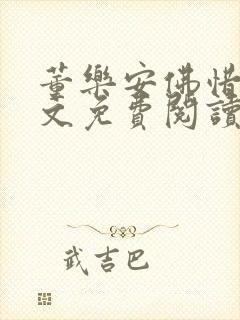 董樂安佛惜
文免費閱讀
武吉巴